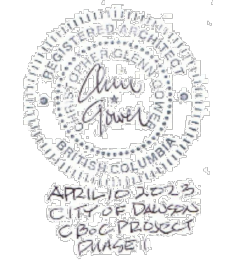 REGISTERED ARCHITECT
CHRISTOPHER GLENN GOWER
Chris
Gower
BRITISH COLUMBIA
APRIL 10 2023
CITY OF DAWSON
CBOC PROJECT
PHASE 1